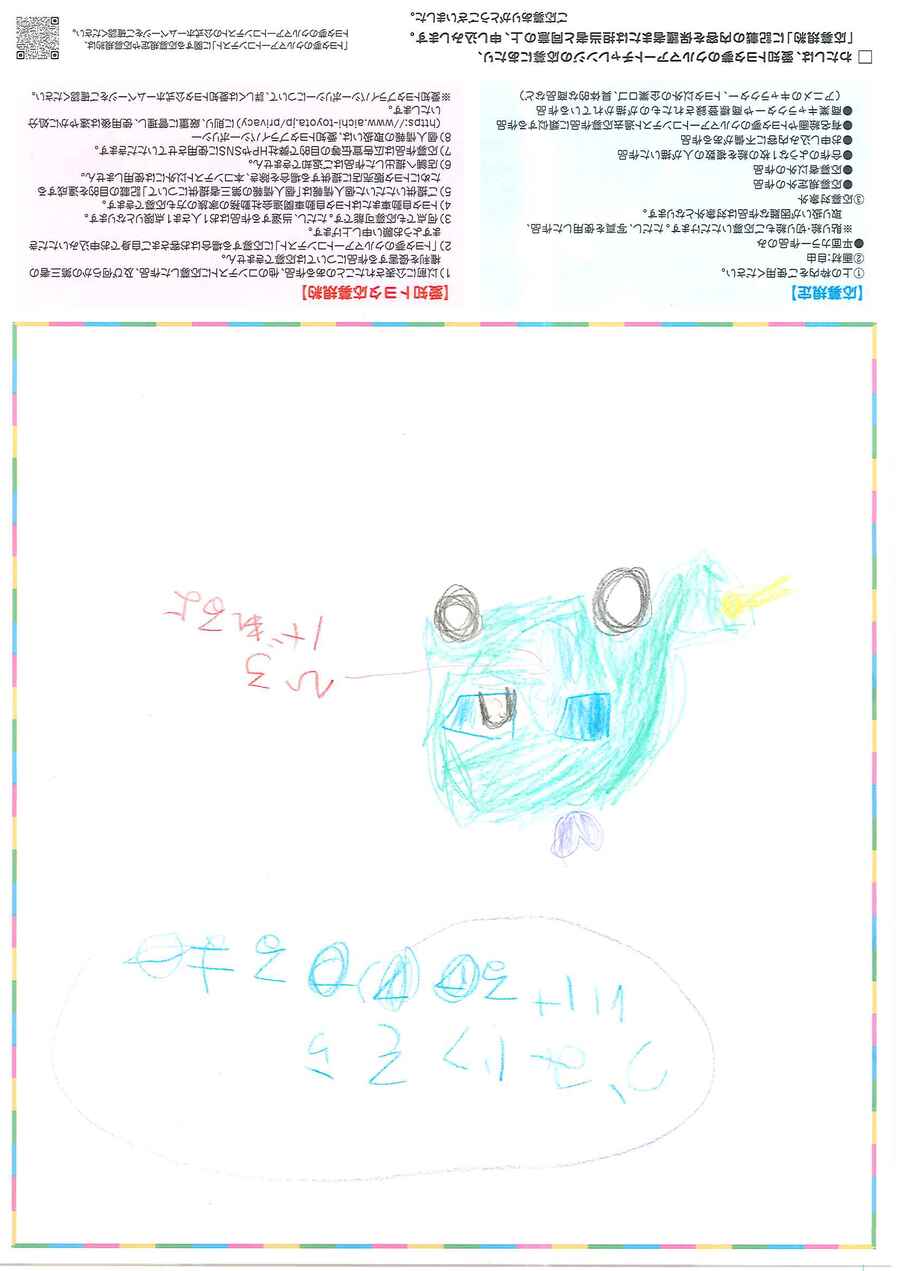 ひろ
げれるよ
【応募規定】
①上の枠内をご使用ください。
②画材:自由
●平面カラー作品のみ
※貼り絵・切り絵も応募いただけます。ただし、写真を使用した作品、
取り扱いが困難な作品は対象外となります。
③応募対象外
●応募規定外の作品
●応募者以外の作品
●合作のような1枚の絵を複数の人が描いた作品
●お申し込み内容に不備がある作品
●有名絵画やトヨタ夢のクルマアートコンテスト過去応募作品に類似する作品
●商業キャラクターや商標登録されたものが描かれている作品
(アニメのキャラクター、トヨタ以外の企業ロゴ、具体的な商品など)
【愛知トヨタ応募規約】
1)以前に公表されたことのある作品、他のコンテストに応募した作品、及び何らかの第三者の
権利を侵害する作品については応募できません。
2)「トヨタ夢のクルマアートコンテスト」に応募する場合はお客さまご自身でお申込みいただき
ますようお願い申し上げます。
3)何点でも応募可能です。ただし、当選する作品はお1人さま1点限りとなります。
4)トヨタ自動車またはトヨタ自動車関連会社勤務の家族の方も応募できます。
5)ご提供いただいた個人情報は「個人情報の第三者提供について」記載の目的を達成する
ためにトヨタ販売店に提供する場合を除き、本コンテスト以外には使用しません。
6)店舗へ提出した作品はご返却できません。
7)応募作品は広告宣伝等の目的で弊社HPやSNSに使用させていただきます。
8)個人情報の取扱いは、愛知トヨタプライバシーポリシー
(https://www.aichi-toyota.jp/privacy)に則り、厳重に管理し、使用後は速やかに処分
いたします。
※愛知トヨタプライバシーポリシーについて、詳しくは愛知トヨタ公式ホームページをご確認ください。
□ わたしは、愛知トヨタ夢のクルマアートチャレンジの応募にあたり、
「応募規約」に記載の内容を保護者または担当者と同意の上、申し込みします。
ご応募ありがとうございました。
「トヨタ夢のクルマアートコンテスト」に関する応募規定や応募規約は、
トヨタ夢のクルマアートコンテストの公式ホームページをご確認ください。